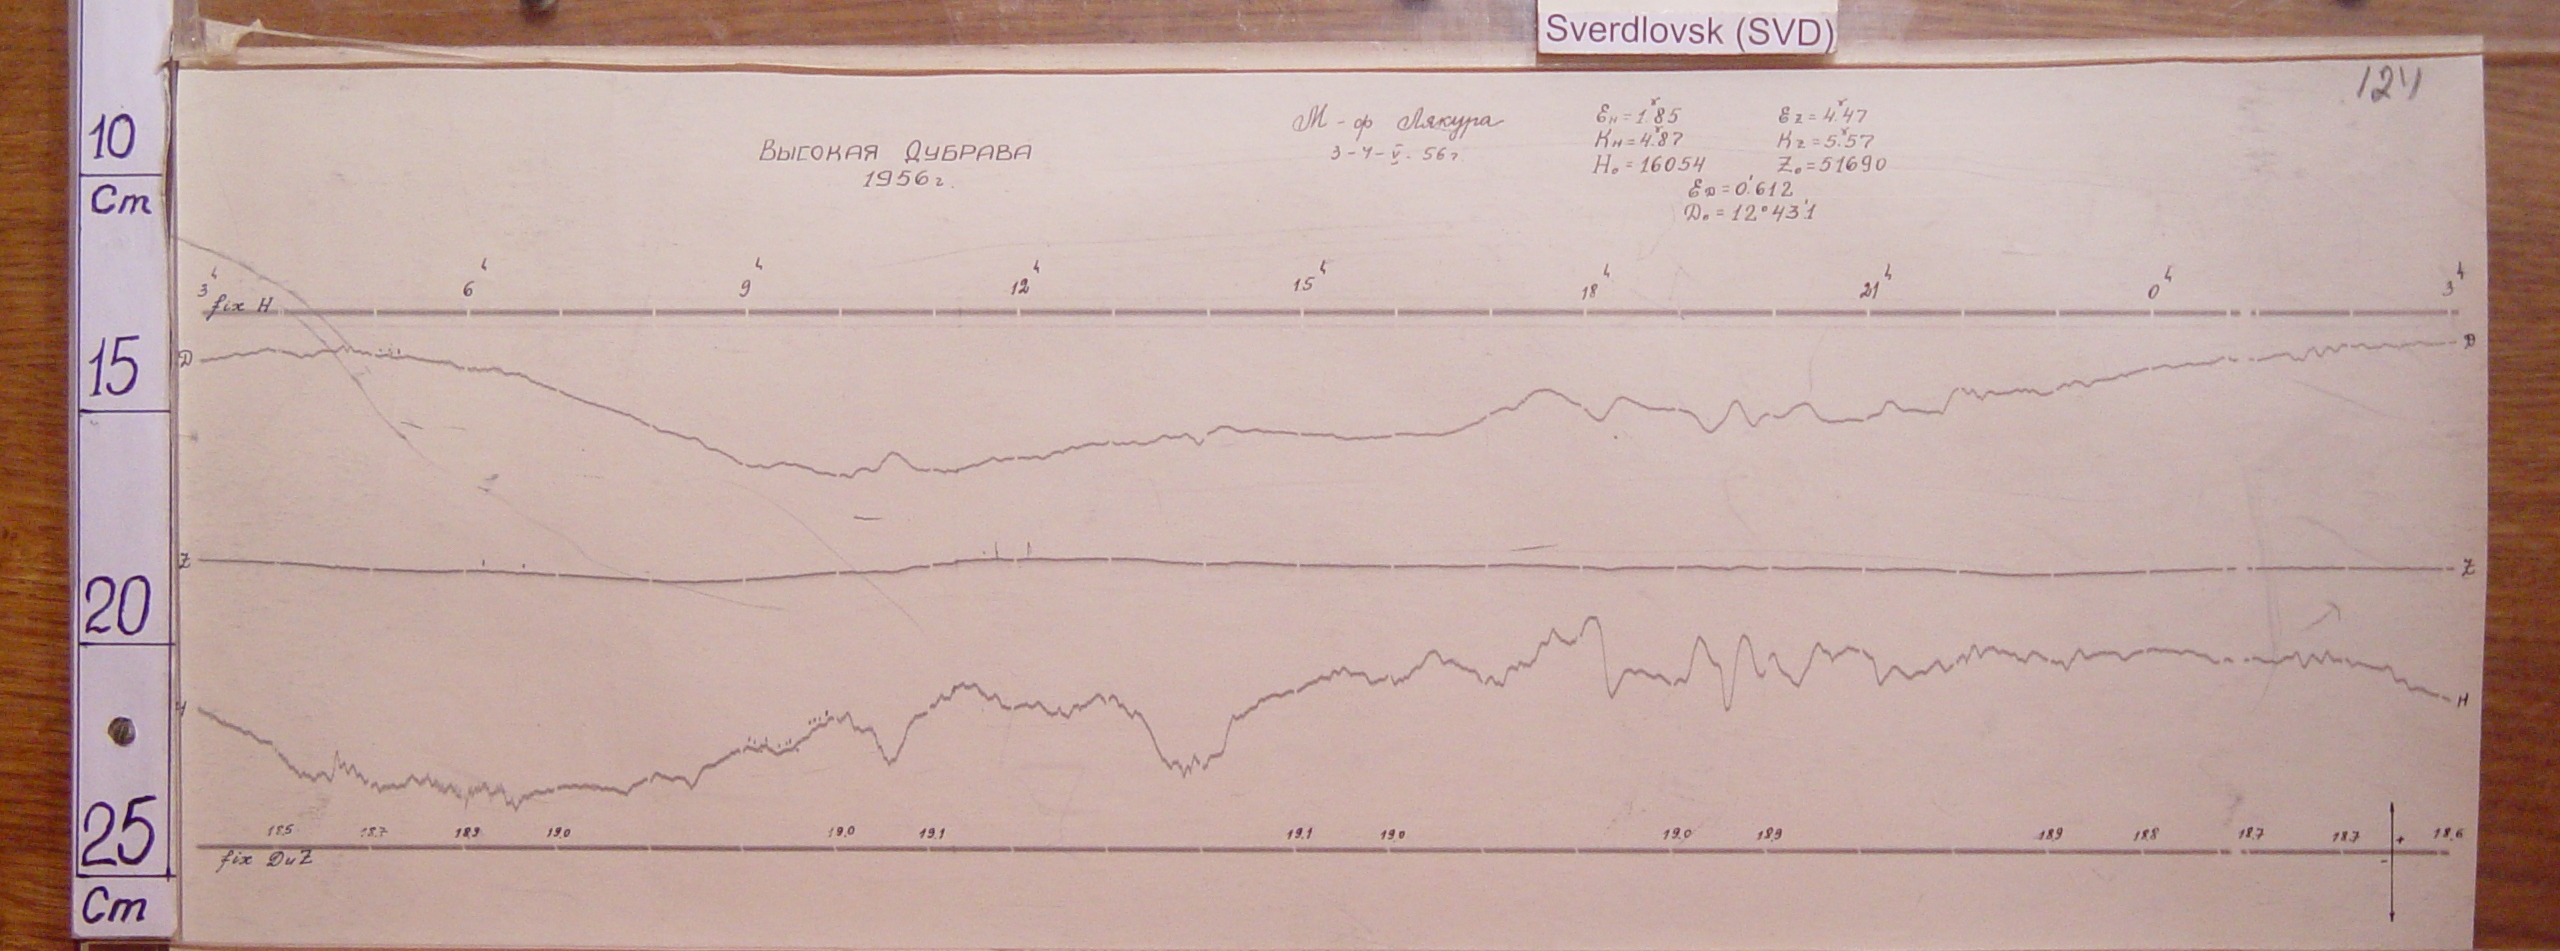 Sverdlovsk (SVD)
124
10
Cm
15
20
25
Cm
Высокая Дубрава
1956г.
М-ф Лякура
3-4-V-56г.
Ен=1.ˠ85
Кн=4.ˠ87
Н₀=16054
Еz=4.ˠ47
Кz=5.ˠ57
Z₀=51690
ЕD=0.'612
D₀=12°43.'1
3ч 6ч 9ч 12ч 15ч 18ч 21ч 0ч 3ч
fix H
D D
Z Z
H H
18.5 18.7 18.9 19.0 19.0 19.1 19.1 19.0 19.0 18.9 18.9 18.8 18.7 18.7 18.6
+
-
fix D и Z